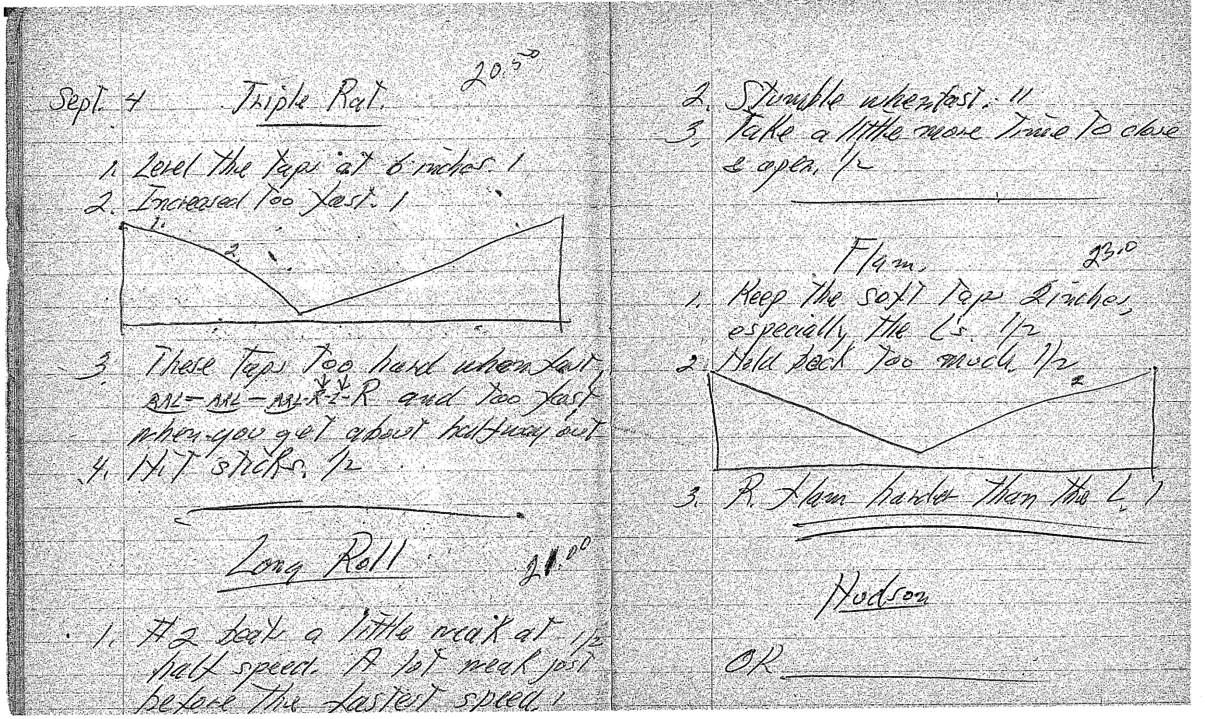 20.50
Sept. 4 Triple Rat.
1. Level the taps at 6 inches. 1
2. Increased too fast. 1
1.
2
3. These taps too hard when fast,
RRL- RRL - RRL-R-L-R and too fast
when you get about halfway out
4. Hit sticks. 1/2
Long Roll 21.00
1. #2 beats a little weak at 1/2
half speed. A lot weak just
before the fastest speed. 1
2. Stumble when fast. 11
3. Take a little more time to close
& open. 1/2
Flam. 23.0
1. Keep the soft taps 2 inches,
especially the Ls. 1/2
2. Hold back too much. 1/2
2
3. R. flam harder than the L. 1
Hudson
OK